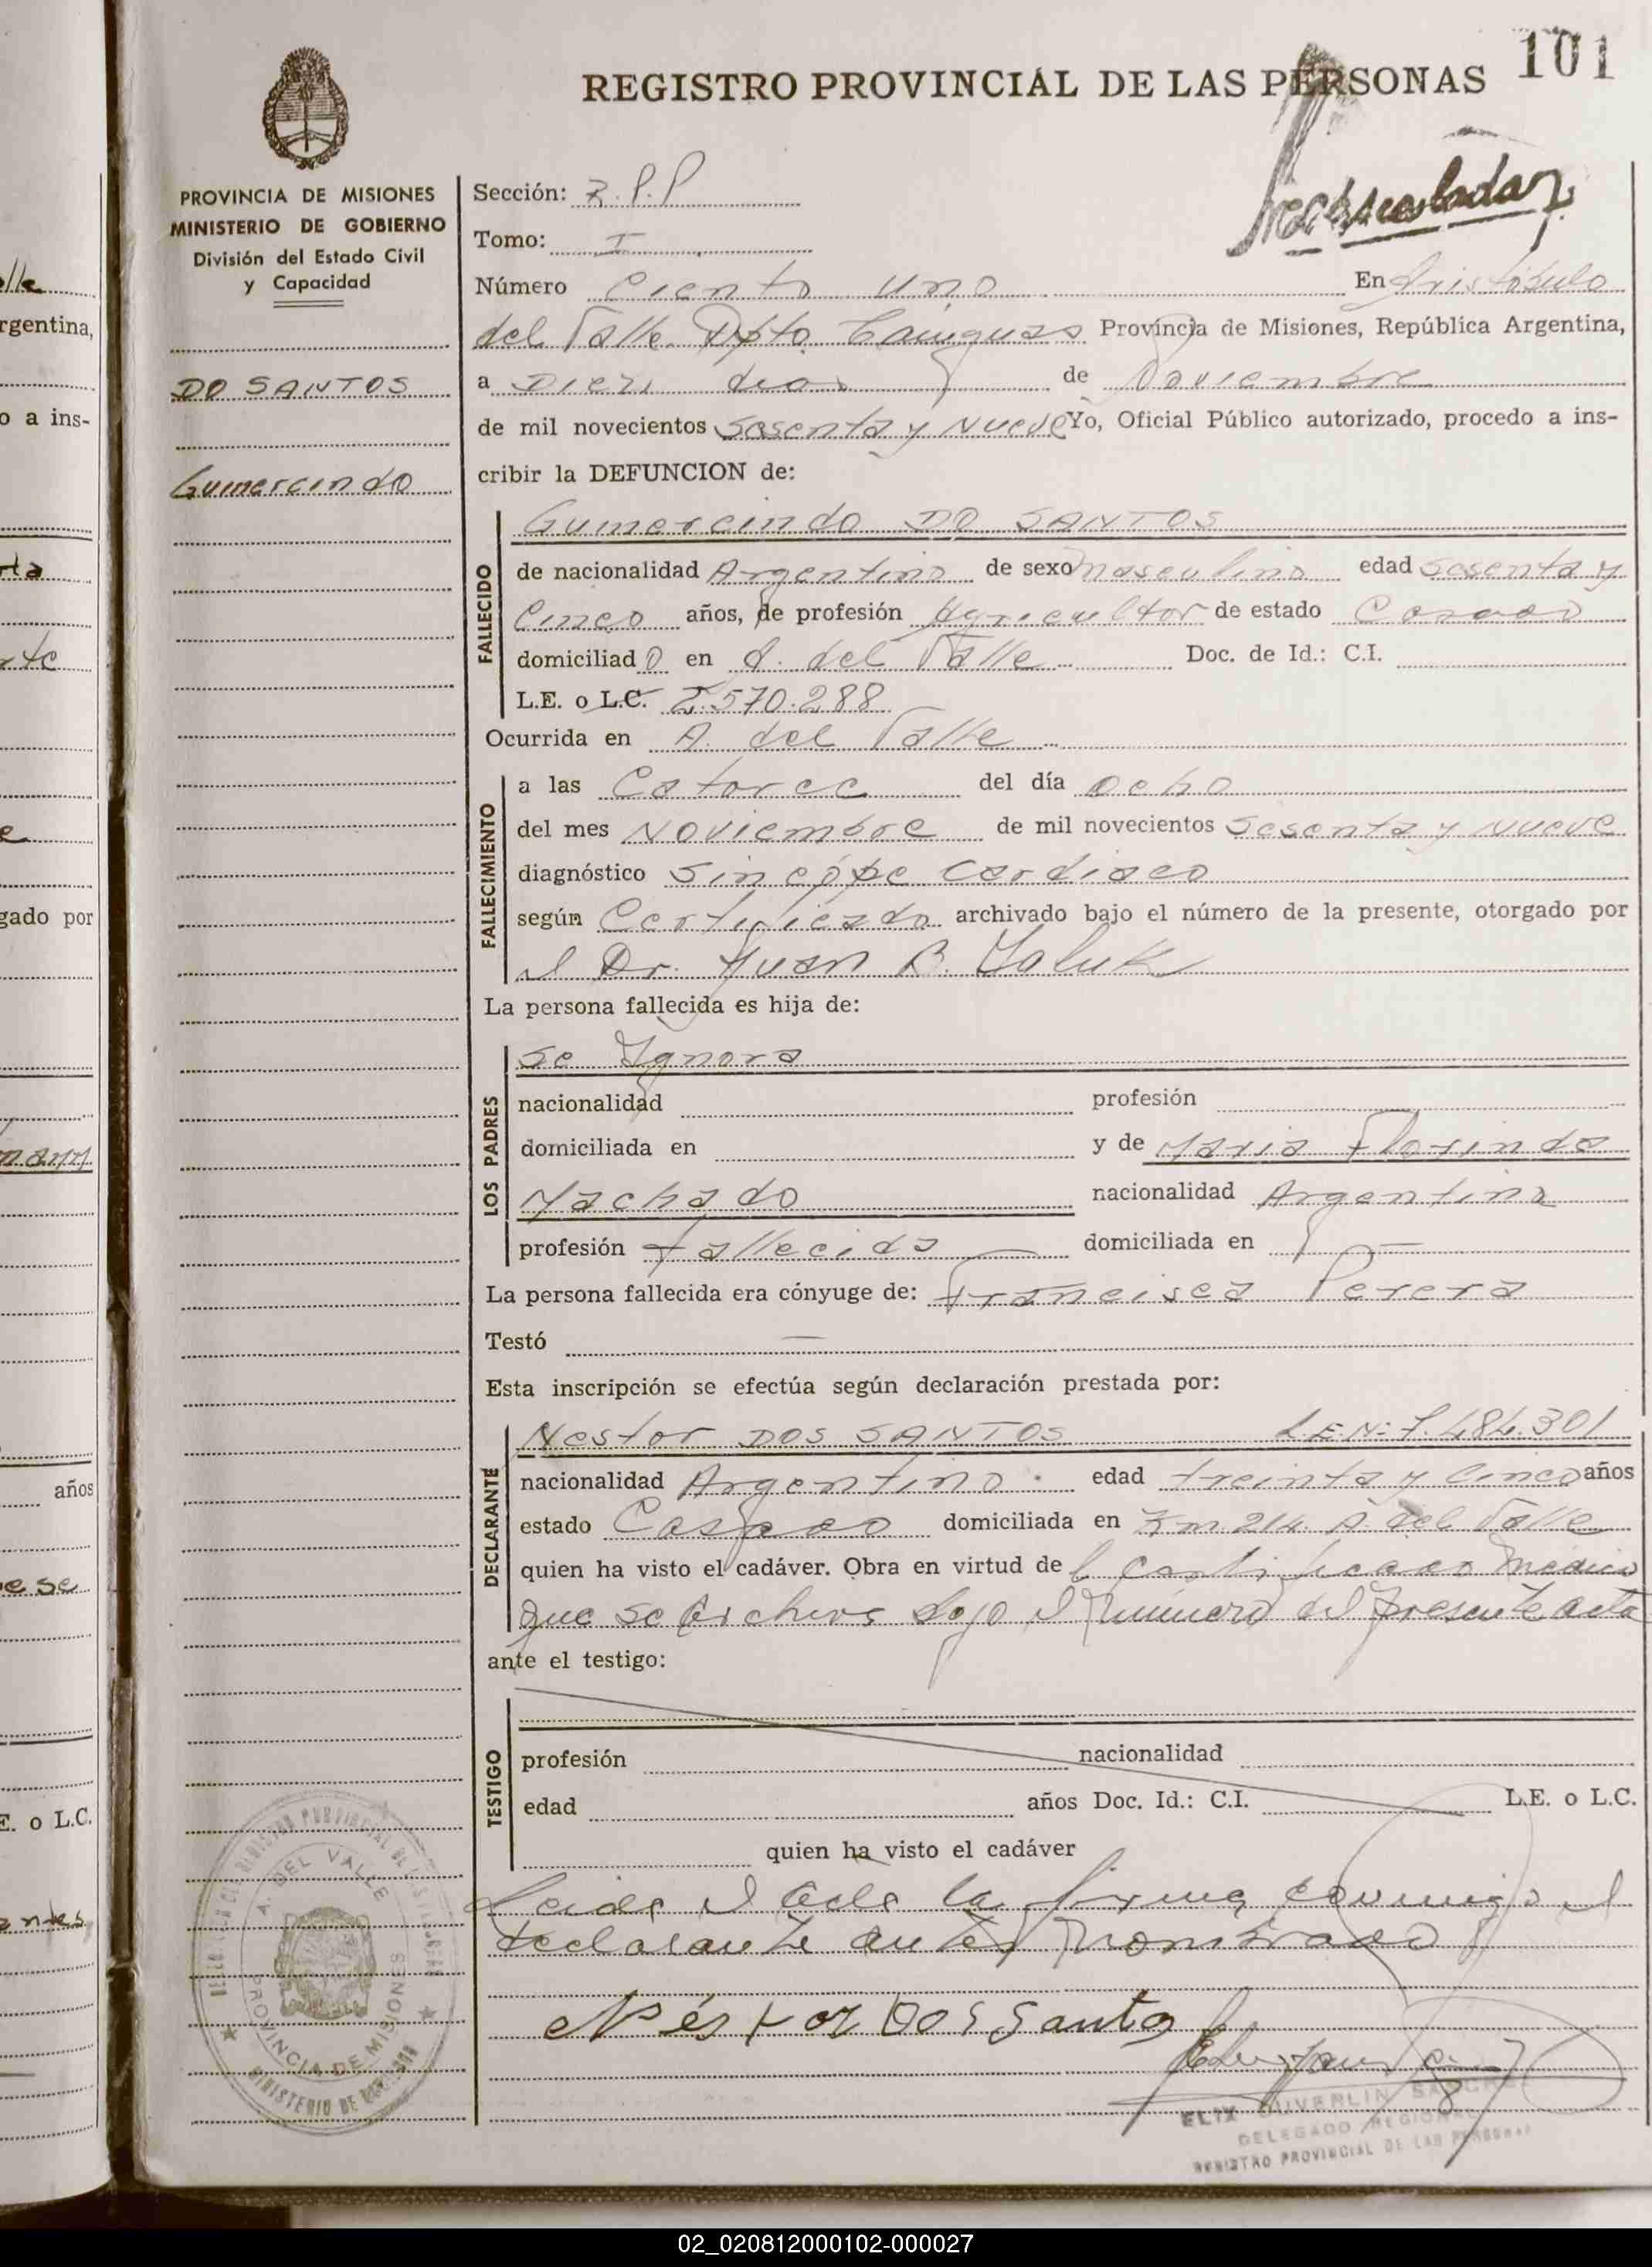 101
REGISTRO PROVINCIAL DE LAS PERSONAS
PROVINCIA DE MISIONES
MINISTERIO DE GOBIERNO
División del Estado Civil
y Capacidad
DO SANTOS
Gumercindo
Sección: R.P.P
Tomo: I
Número Ciento uno En Aristóbulo
del Valle Dpto. Cainguas Provincia de Misiones, República Argentina,
a Diez días de Noviembre
de mil novecientos Sesenta y Nueve Yo, Oficial Público autorizado, procedo a ins-
cribir la DEFUNCION de:
FALLECIDO
Gumercindo DO SANTOS
de nacionalidad Argentino de sexo masculino edad sesenta y
Cinco años, de profesión Agricultor de estado Casado
domiciliado en A. del Valle Doc. de Id.: C.I.
L.E. o L.C. 2.570.288
Ocurrida en A. del Valle
FALLECIMIENTO
a las Catorce del día Ocho
del mes Noviembre de mil novecientos Sesenta y Nueve
diagnóstico Sincópe Cardiaco
según Certificado archivado bajo el número de la presente, otorgado por
el Dr. Juan B.
La persona fallecida es hija de:
LOS PADRES
Se Ygnora
nacionalidad profesión
domiciliada en y de Maria Florinda
Machado nacionalidad Argentina
profesión fallecida domiciliada en
La persona fallecida era cónyuge de: Francisca Perera
Testó
Esta inscripción se efectúa según declaración prestada por:
DECLARANTE
Nestor DOS SANTOS L.E.Nº 7.484.301
nacionalidad Argentino edad treinta y Cinco años
estado Casado domiciliada en Km. 214. A. del Valle
quien ha visto el cadáver. Obra en virtud de Certificado Médico
que se Archiva bajo el Número del presente acta
ante el testigo:
TESTIGO
profesión nacionalidad
edad años Doc. Id.: C.I. L.E. o L.C.
quien ha visto el cadáver
Leida el Acta la firma conmigo el
declarante antes Nombrado
Néstor Dos Santo
A. DEL VALLE
PROVINCIA DE MISIONES
MINISTERIO DE
DELEGADO REGIONAL
REGISTRO PROVINCIAL DE LAS PERSONAS
lle
rgentina,
o a ins-
gado por
años
E. o L.C.
02_020812000102-000027